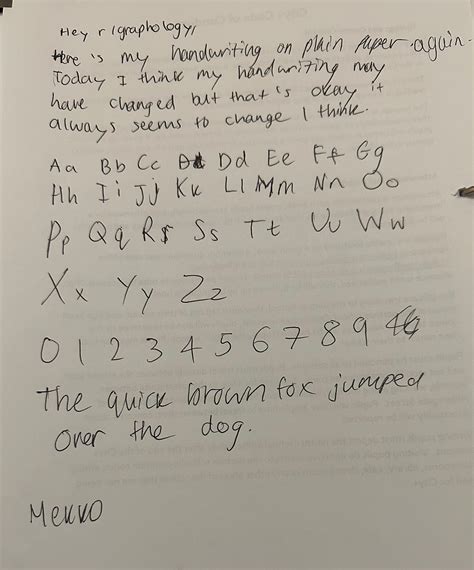 Hey r/graphology,
Here is my handwriting on plain paper again.
Today I think my handwriting may
have changed but that's okay it
always seems to change I think.
Aa Bb Cc Dd Ee Ff Gg
Hh Ii Jj Kk Ll Mm Nn Oo
Pp Qq Rr Ss Tt Uu Ww
Xx Yy Zz
0 1 2 3 4 5 6 7 8 9
The quick brown fox jumped
over the dog.
MEKKO